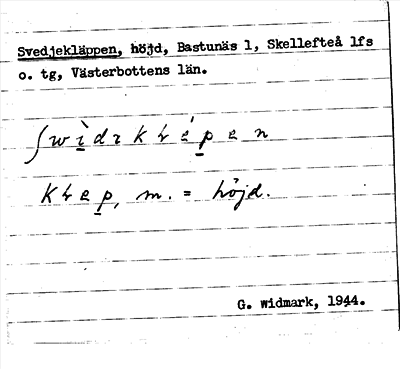 Svedjekläppen, höjd, Bastunäs 1, Skellefteå lfs
o. tg, Västerbottens län.
m. = höjd.
G. Widmark, 1944.